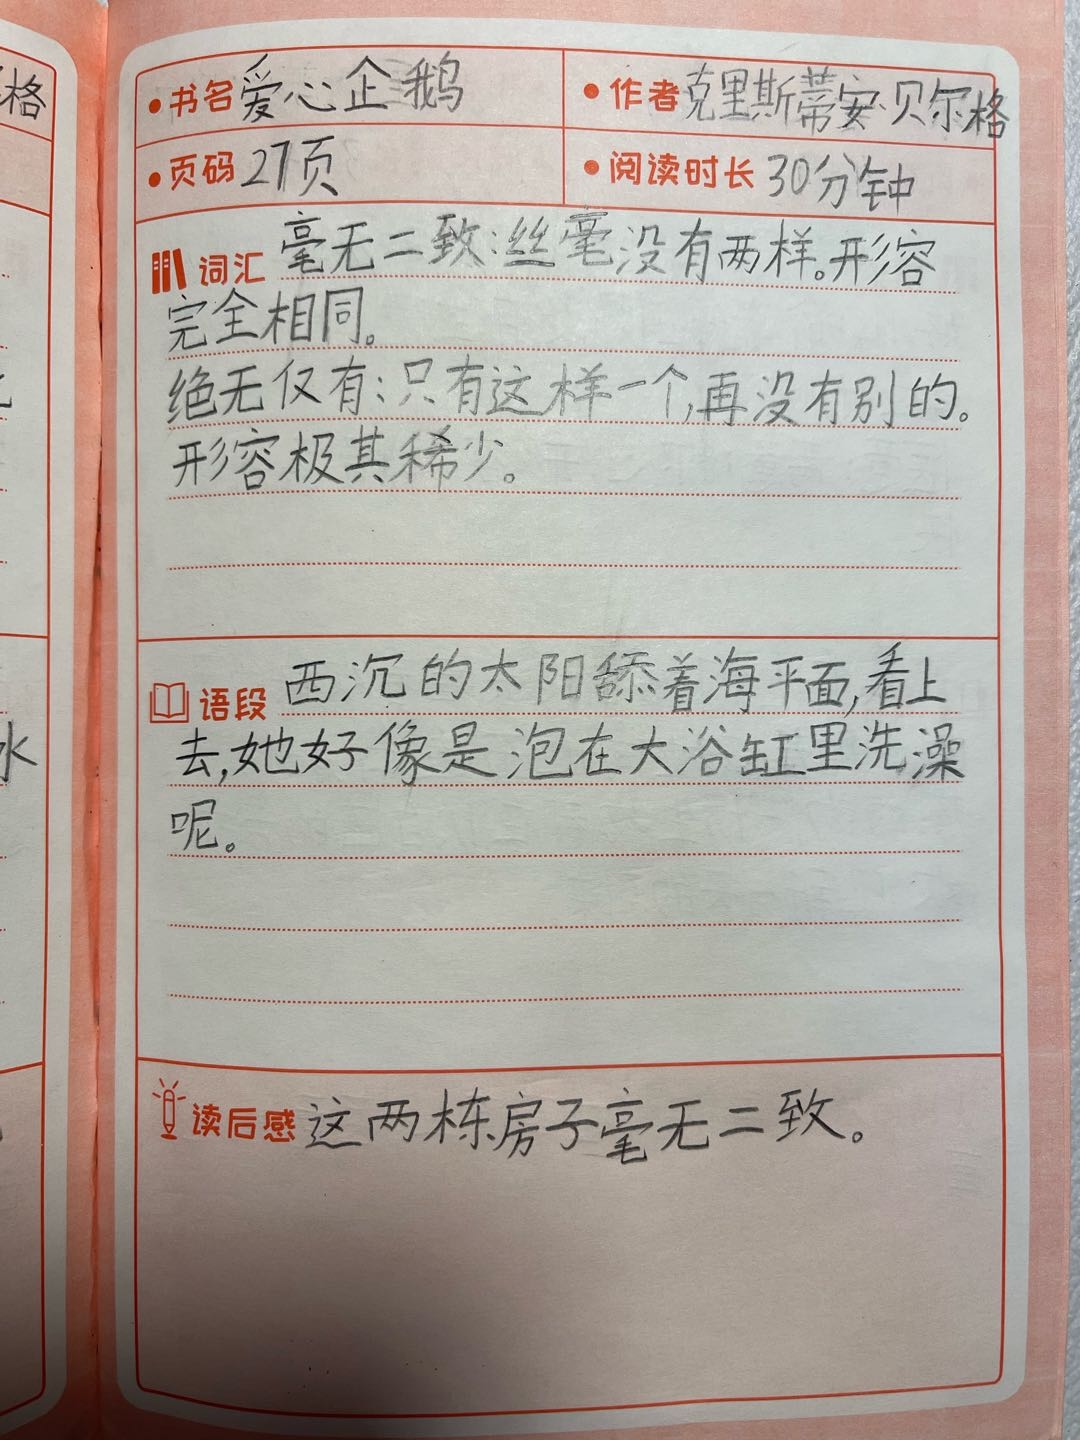 格
书名 爱心企鹅
作者 克里斯蒂安·贝尔格
页码 27页
阅读时长 30分钟
词汇 毫无二致:丝毫没有两样。形容
完全相同。
绝无仅有:只有这样一个,再没有别的。
形容极其稀少。
水
语段 西沉的太阳舔着海平面,看上
去,她好像是泡在大浴缸里洗澡
呢。
读后感 这两栋房子毫无二致。